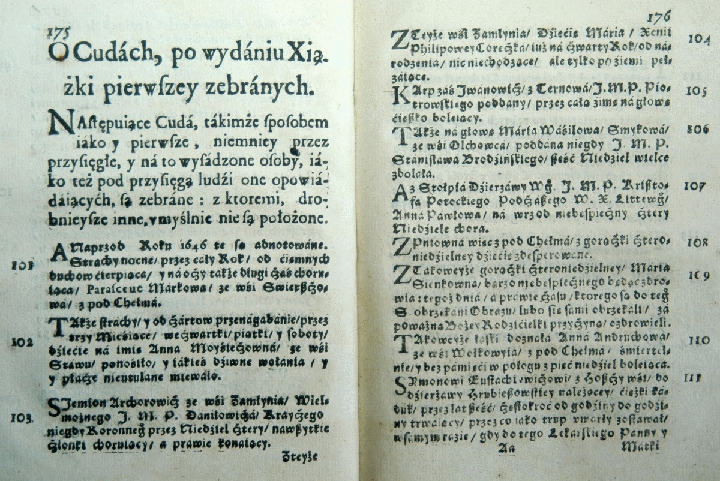 175
O Cudách, po wydániu Xią-
żki pierwſzey zebránych.
NAſtępuiące Cudá, tákimże ſpoſobem
iako y pierwsze, niemniey przez
przyſięgłe, y ná to wyſádzone oſoby, iá-
ko też pod przyſięgą ludźi one opowiá-
dáiących, ſą zebráne: z ktoremi, dro-
bnieysze inne, vmyślnie nie ſą położone.
101 A Naprzod Roku 1646 te są abnotowáne.
Strachy nocne, przez cáły Rok, od ciemnych
duchow ćierpiąca, y ná oczy także długi czas choru-
iąca, Paraſceue Markowa, ze wśi Swierszczo-
wa, z pod Chełmá.
102 TAkże ſtráchy, y od Czártow przenágabánie, przez
trzy Mieśiące, we czwartki, piątki, y ſoboty,
dźiećie ná imie Anna Moyſiechowná, ze wśi
Stawu, ponośiło, y iákieś dźiwne wołánia, y
y płacze nieutulane miewáło.
103 SJemion Archorowicz ze wśi Zamłynia, Wiel-
możnego J. M. P. Daniłowiczá, Kráyczego
niegdy Koronneg przez Niedźiel cztery, ná wszytkie
członki choruiący, á práwie konáiący.
Zteyże
176
104 ZTeyże wśi Zamłynia, Dźiećie Mária, Xenii
Philipowey Coreczka, iuż ná czwarty Rok, od ná-
rodzenia, nie niechodzące, ále tylko po źiemi peł-
záiące.
105 KArp zaś Jwanowicz, z Ternowá, J. M. P. Pio-
trowſkiego poddány, przez cáłą źimę ná głowę
ćieszko boleiący.
106 TAkże ná głowę Márta Wáśilowa, Smykowá,
ze wśi Olchowca, poddána niegdy J. M. P.
Stániſława Brodźińſkiego, ſześć Niedźiel wielce
zbolała.
107 A z Stołpia Dźierżáwy Wg. J. M. P. Krisſto-
fa Potockiego Podczászego W. X. Littewg,
Anna Páwłowa, ná wrzod niebeſpieczny cztery
Niedźiele chora.
108 ZPniowna wieſz pod Chełma, z gorączki cztero-
niedźielney dźiećie zdeſperowáne.
109 ZTákoweyże gorączki czteroniedźielney, Márta
Sienkowna, bárzo niebeſpiecznego będąc zdro-
wia: tegoż dniá, á práwie czáſu, ktorego ſą do teg
S obrzekáni Obrázu, lubo śie ſámi obrzekáli, zá
poważną Bożey Rodźićielki przyczyną, ozdrowieli.
110 TAkoweyże łáſki doznáła Anna Andruchowa,
ze wśi Wołkowyia, z pod Chełmá, śmiertelá-
nie, y bez pámięći w połogu z pięć niedźiel boleiąca.
111 SYmonowi Euſtáchiewiczowi, z Hoszczy wśi, do
dźierżáwy Hrubieszowſkiey należącey, ćięszki ká-
duk, przez lat ſześć, częſtokroć od godźiny do godźi-
ny trwáiący, przez co iáko trup vmárły zoſtáwał,
w ſámym ráźie, gdy do tego Lekárſkiego Pánny y
Aa Mátki